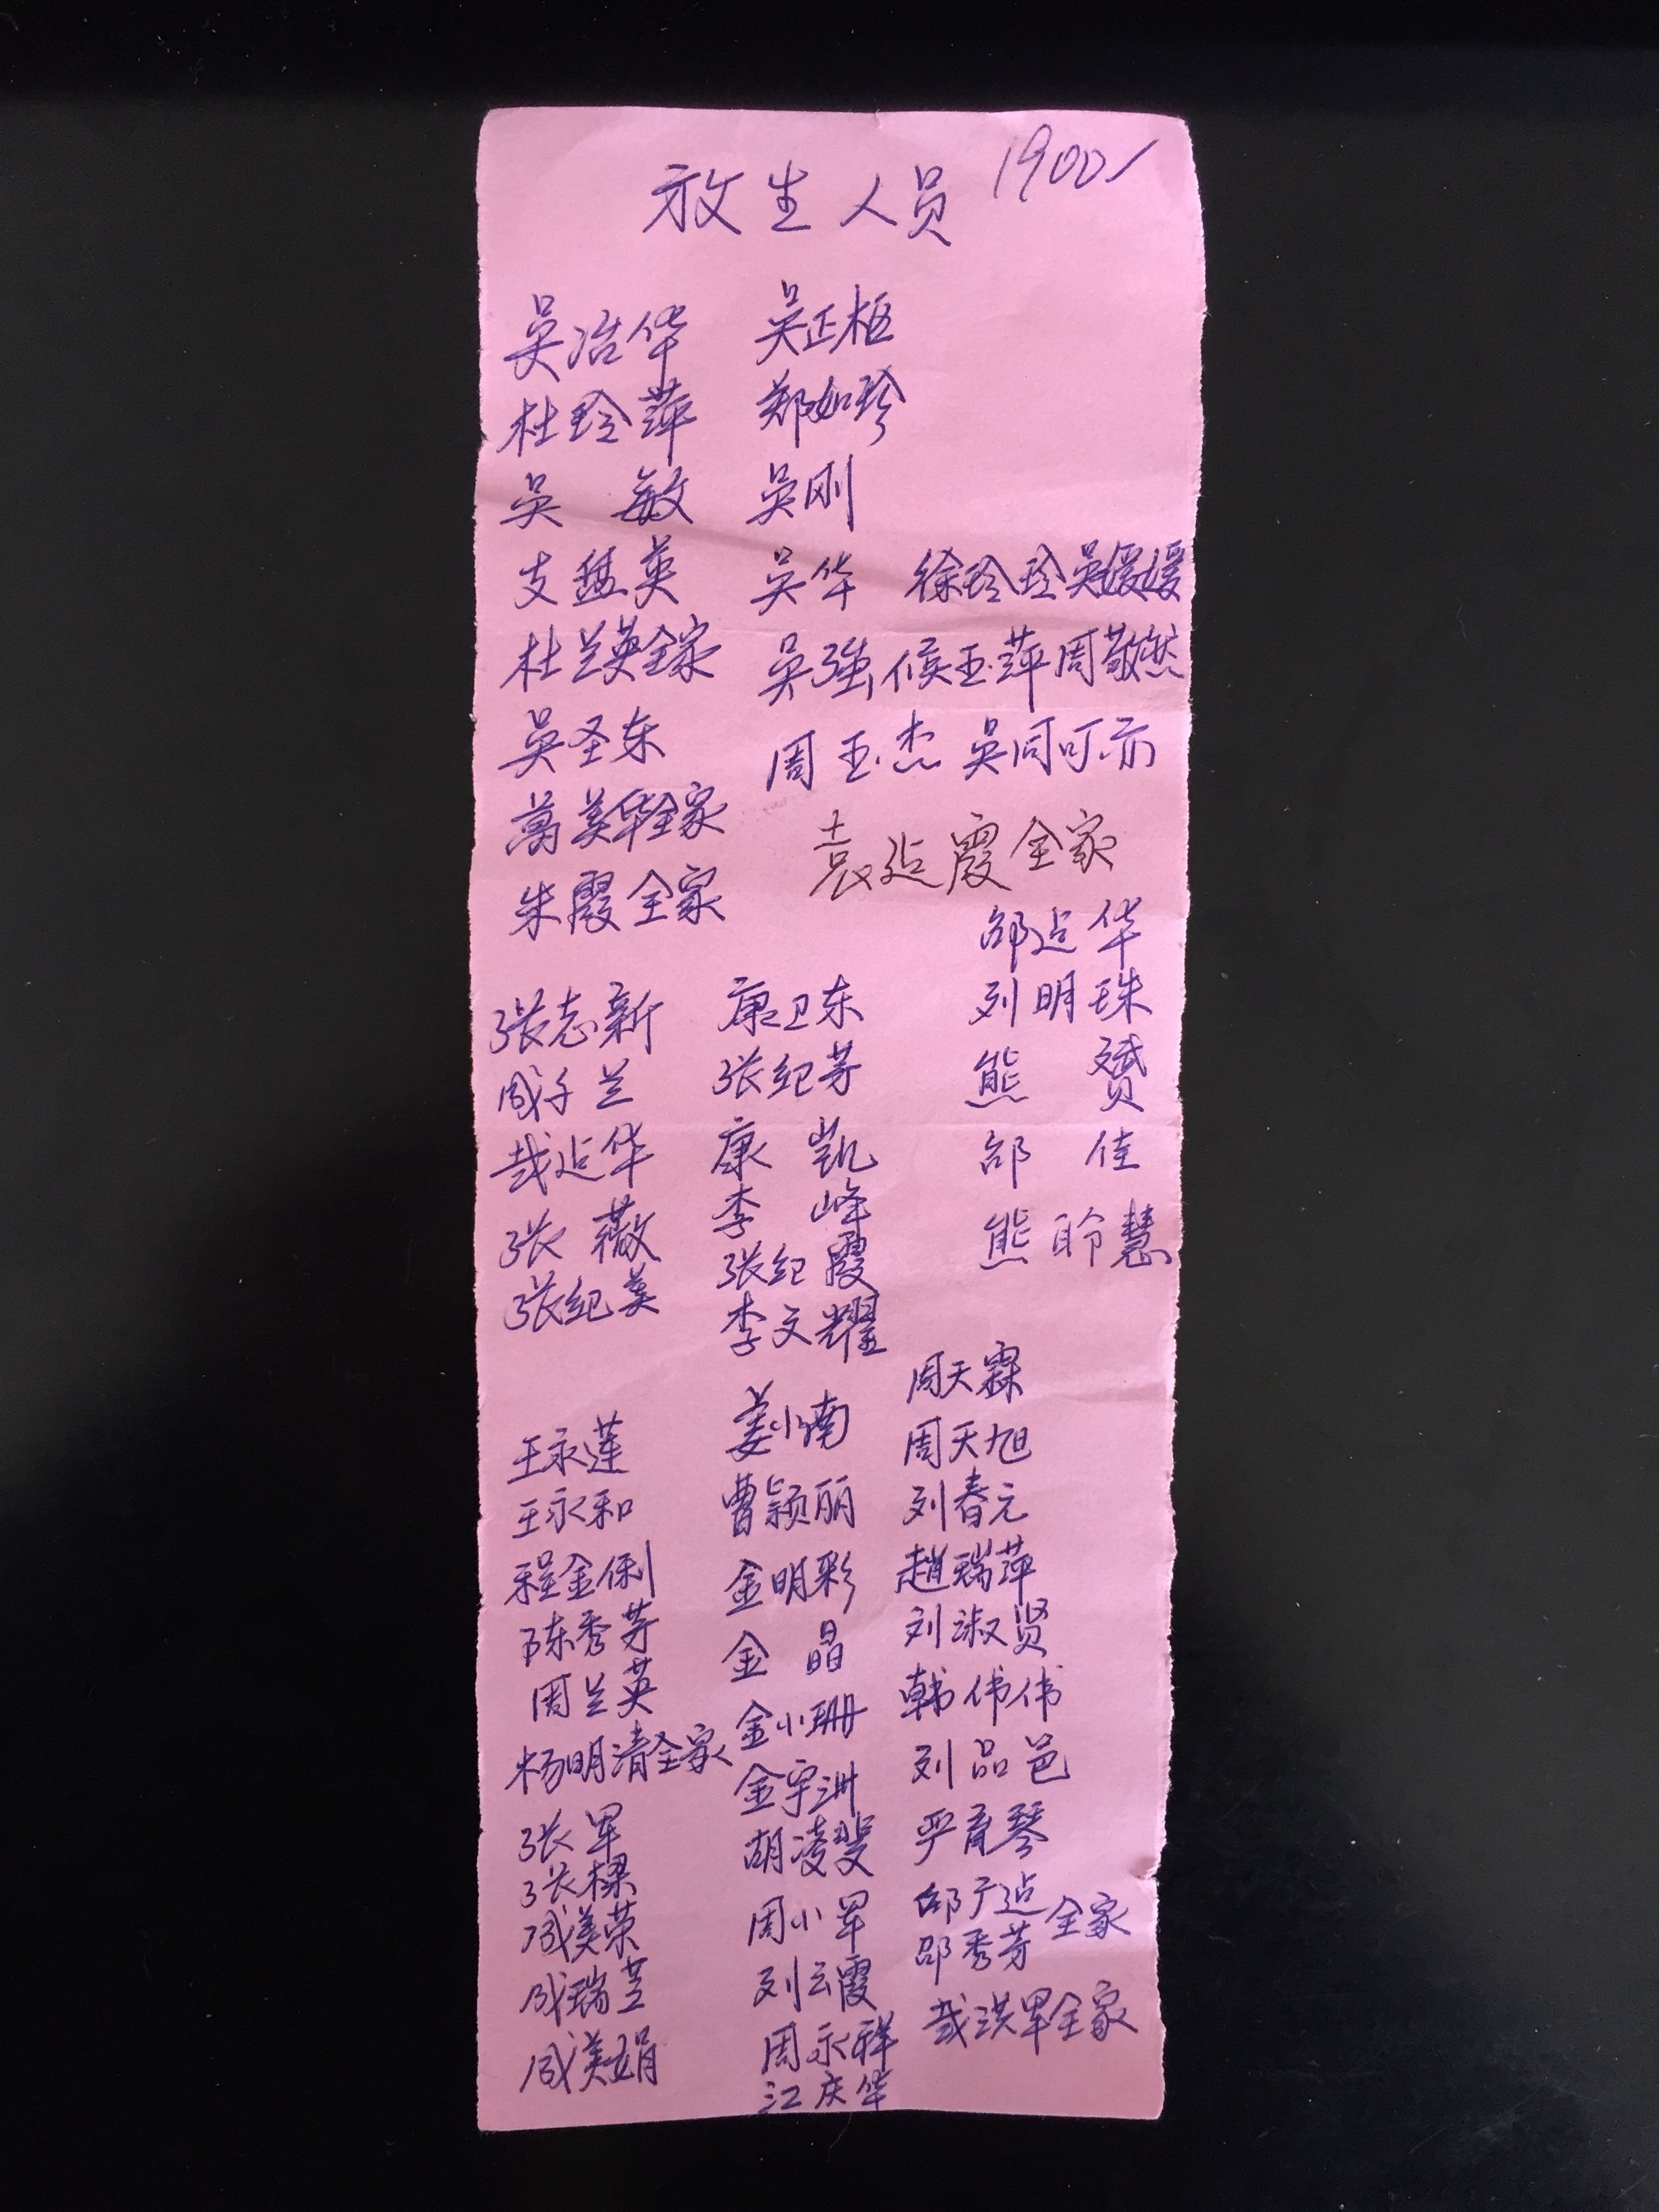 放生人员 1900/
吴冶华 吴正枢
杜玲萍 郑如珍
吴 敏 吴刚
支猛英 吴华 徐玲玲 吴媛媛
杜兰英全家 吴强 候玉萍 周敬燃
吴圣东 周玉杰 吴同可示
萬美华全家
袁延霞全家
朱霞全家
邵延华
张志新 康卫东 刘明珠
成千兰 张纪芳 熊 赟
哉延华 康 凯 邵 佳
张 薇 李 峰 熊聆慧
张纪美 张纪霞
李文耀
周天霖
王永莲 姜小楠 周天旭
王永和 曹颖丽 刘春元
程金俐 金明彩 赵瑞萍
陈秀芳 金 晶 刘淑贤
周兰英 金小珊 韩伟伟
杨明清全家 金宇洲 刘品邑
张军 胡凌斐 严育琴
张樑 邵广延 全家
成美荣 周小军 邵秀芳
成瑞芝 刘云霞 哉洪军全家
成美娟 周永祥
江庆华